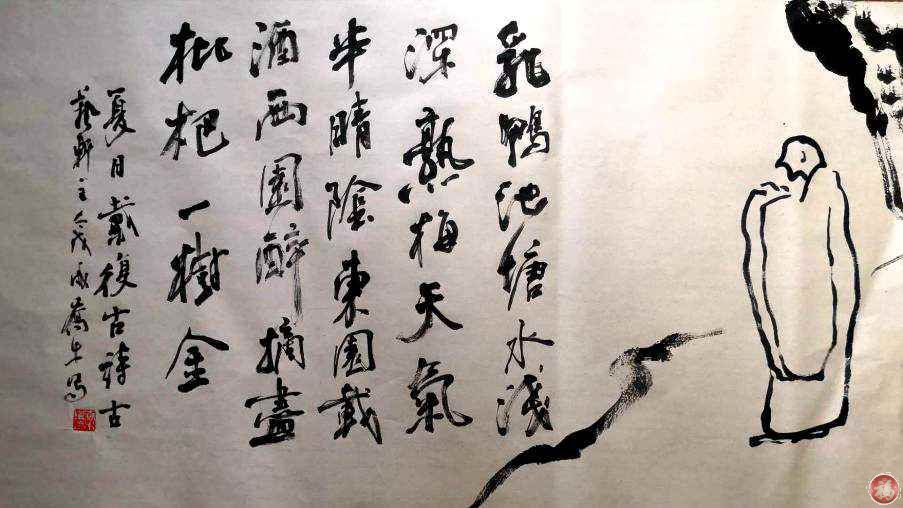 乳鴨池塘水淺
深熟梅天氣
半晴陰東園載
酒西園醉摘盡
枇杷一樹金
夏日戴復古詩古
藝軒主人戊戌
福